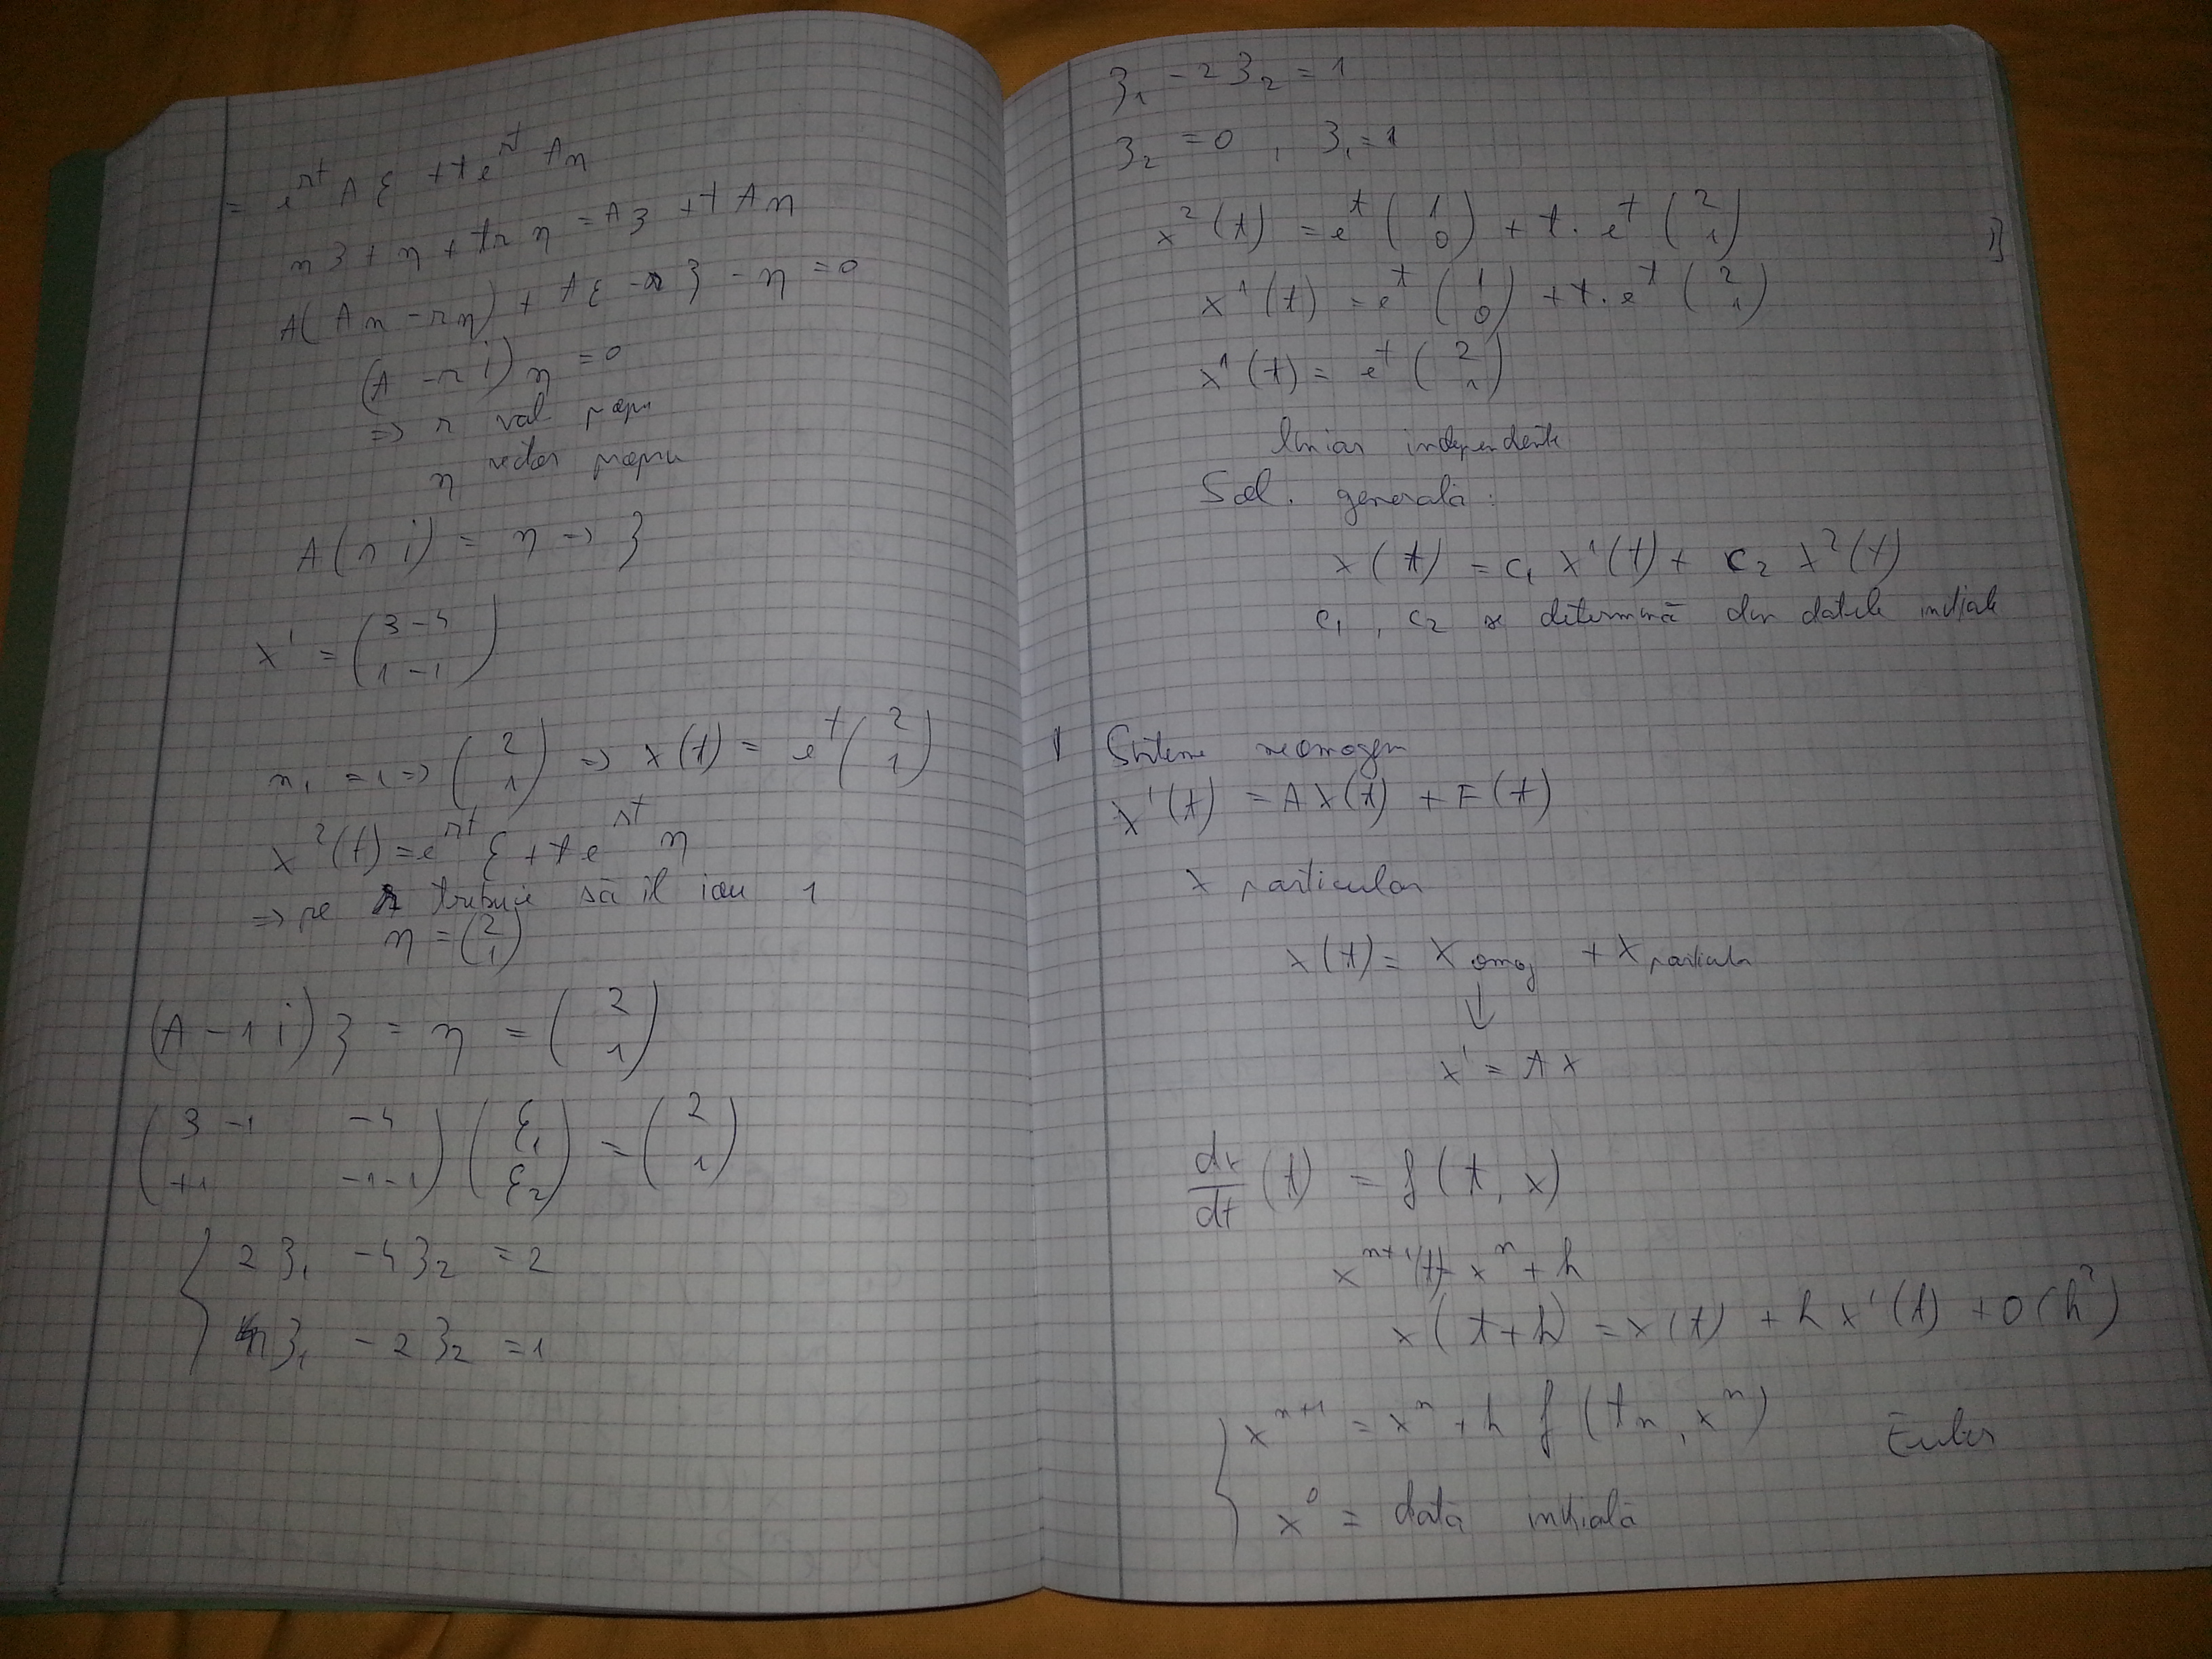 = e^{rt} A ξ + t e^{rt} A η
r ξ + η + t r η = A ξ + t A η
A ( A η - r η ) + A ξ - r ξ - η = 0
(A - r i) η = 0
⇒ r val propri
η vector propriu
A ( r i ) = η → ξ
x' = ( 3 - 4
1 - 1 )
r_1 = 1 ⇒ ( 2 1 ) ⇒ x(t) = e^t ( 2 1 )
x^2(t) = e^{rt} ξ + t e^{rt} η
⇒ pe r trebuie să îl iau 1
η = ( 2 1 )
(A - 1 i) ξ = η = ( 2 1 )
( 3 - 1 -4
+1 -1-1 ) ( ξ_1 ξ_2 ) = ( 2 1 )
2 ξ_1 - 4 ξ_2 = 2
ξ_1 - 2 ξ_2 = 1
ξ_1 - 2 ξ_2 = 1
ξ_2 = 0 , ξ_1 = 1
x^2 (t) = e^t ( 1 0 ) + t · e^t ( 2 1 )
x^1 (t) = e^t ( 1 0 ) + t · e^t ( 2 1 )
x^1 (t) = e^t ( 2 1 )
liniar independente
Sol. generală :
x(t) = c_1 x^1(t) + c_2 x^2(t)
c_1 , c_2 se determină din datele inițiale
Sisteme neomogen
x'(t) = A x(t) + F(t)
x particular
x(t) = x omog + x particular
↓
x' = A x
dx/dt (t) = f (t, x)
x^{n+1}(t) = x^n + h
x (t+h) = x(t) + h x'(t) + O(h^2)
x^{n+1} = x^n + h f (t_n, x^n) Euler
x^0 = dată inițială